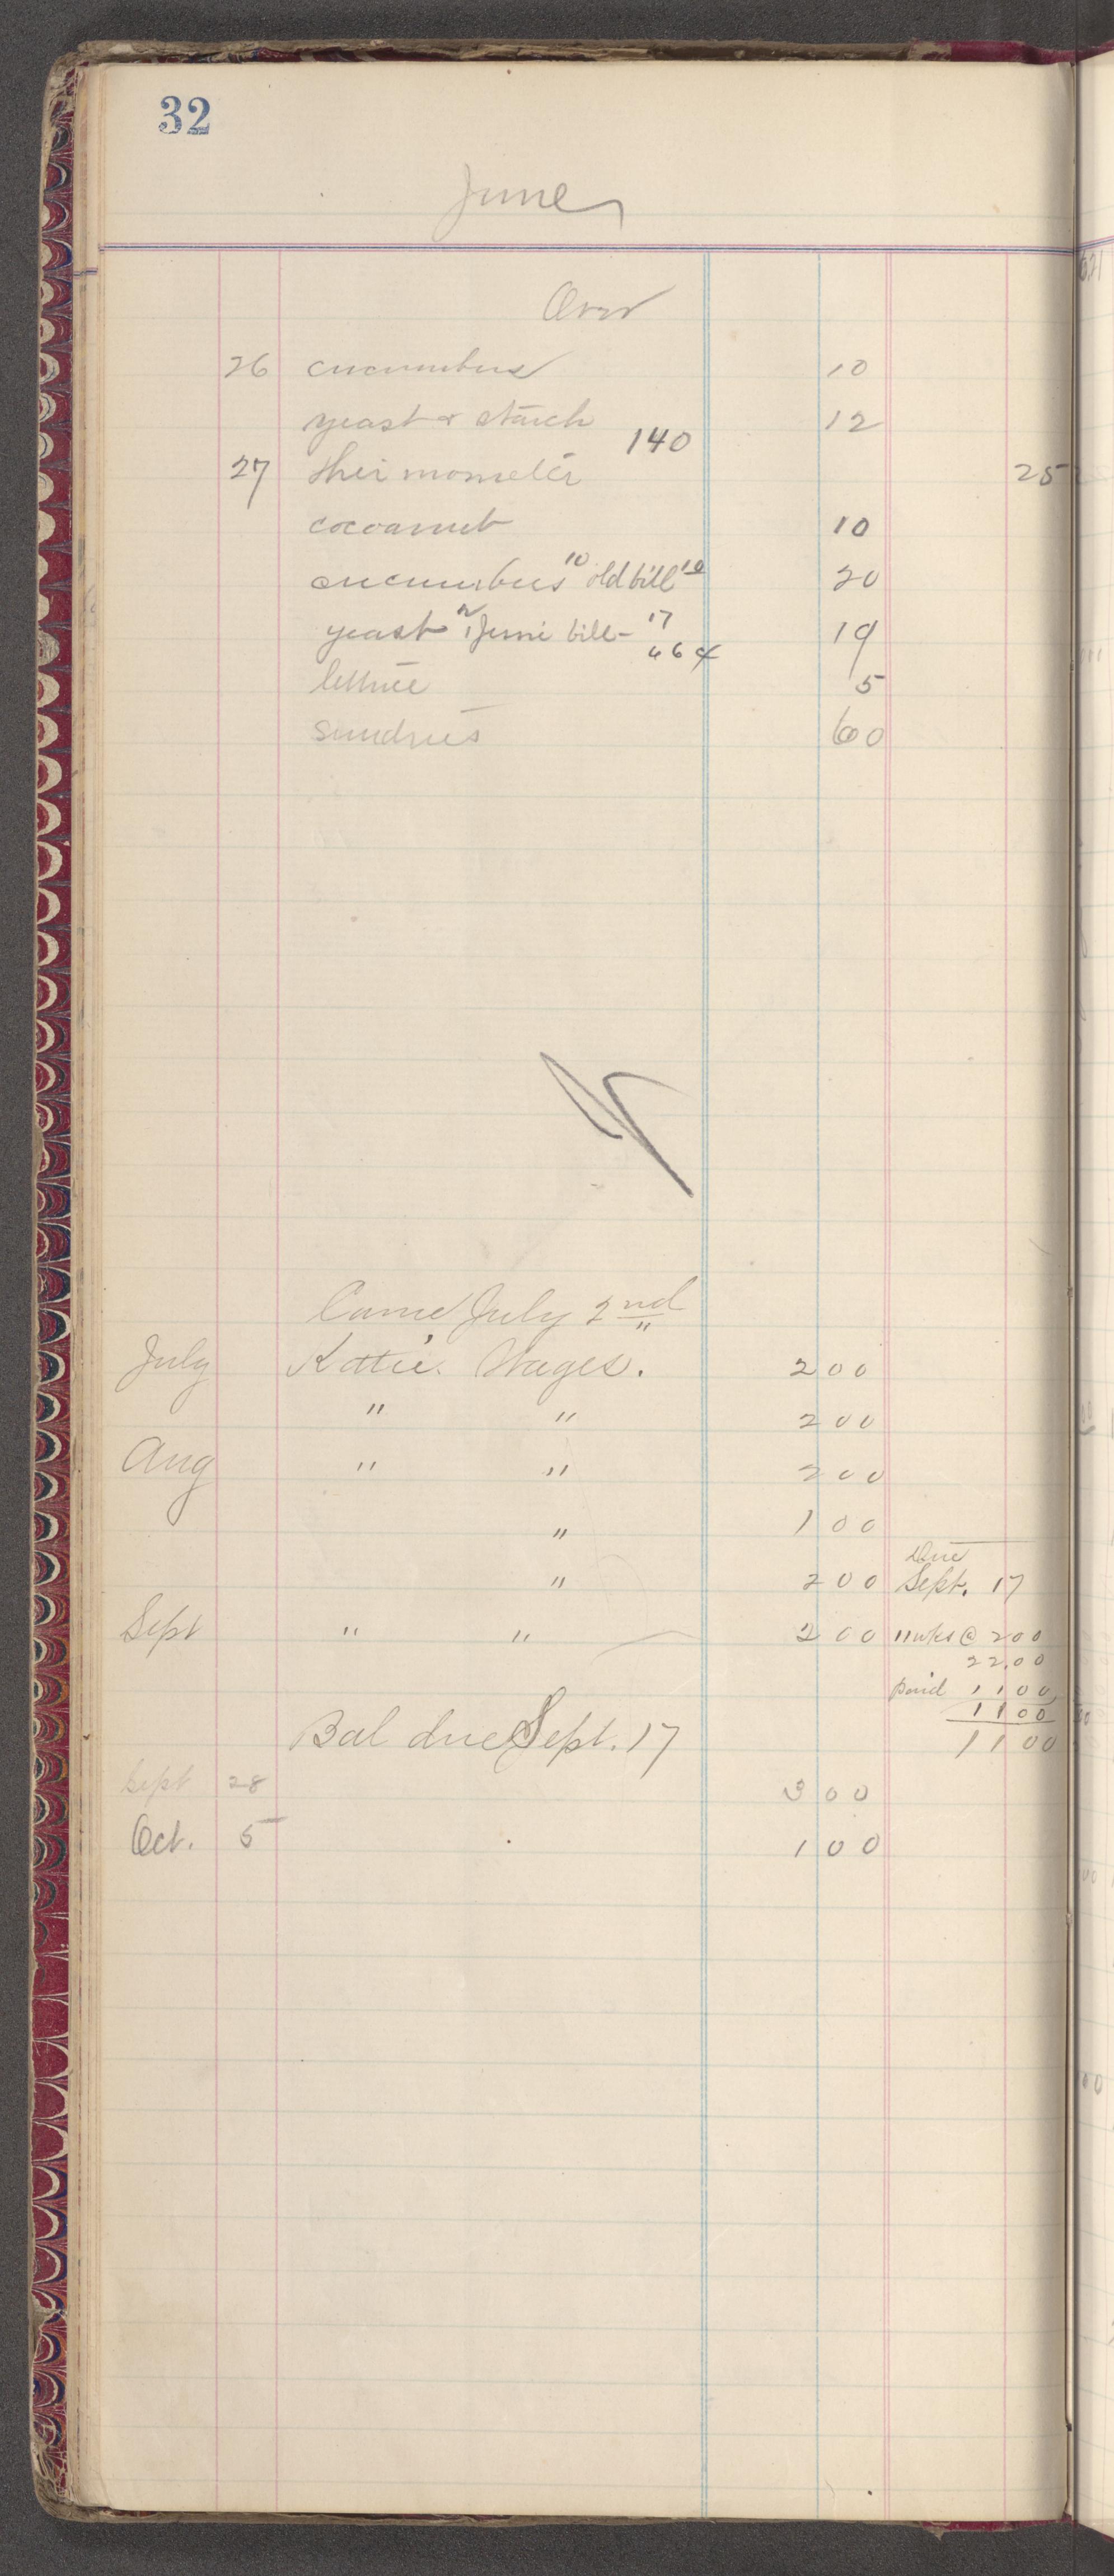 32
June
Over
26 cucumbers 10
yeast & starch 12
140
27 thermometer 25
cocoanut 10
cucumbers 10 old bill 10 20
yeast 2 bill - 17 19
lettuce 5
sundries 60
Came July 2nd
July Katie. Wages. 200
" " 200
Aug " " 200
" 100
Due
" 200 Sept. 17
Sept " " 200 11 wks @ 200
22.00
paid 1100
1100
Bal due Sept. 17 1100
Sept 28 300
Oct. 5 100